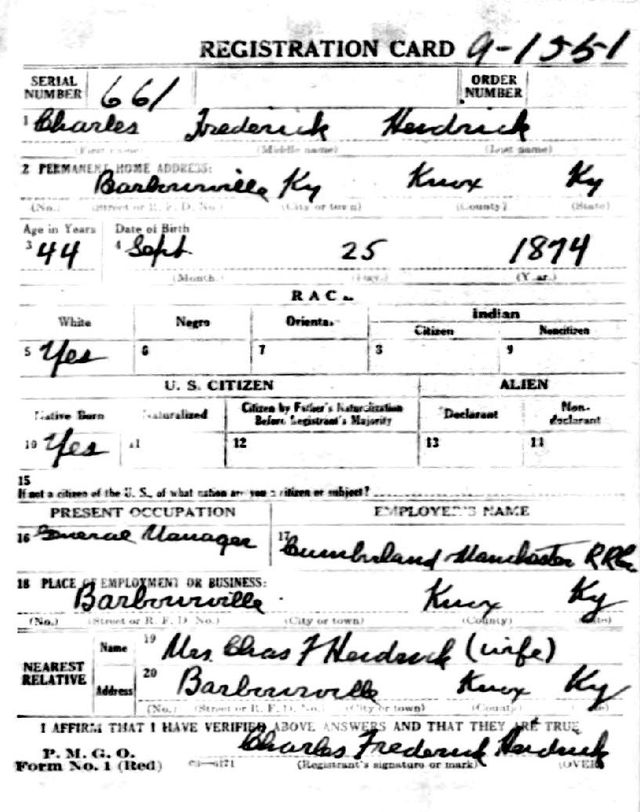 REGISTRATION CARD 9-1551
SERIAL NUMBER 661 ORDER NUMBER
1 Charles Frederick Heidrick
(First name) (Middle name) (Last name)
2 PERMANENT HOME ADDRESS:
Barbourville Ky Knox Ky
(No.) (Street or R. F. D. No.) (City or town) (County) (State)
Age in Years Date of Birth
3 44 4 Sept 25 1874
(Month.) (Day.) (Year.)
RACE
White Negro Oriental Indian
Citizen Noncitizen
5 Yes 6 7 8 9
U. S. CITIZEN ALIEN
Native Born Naturalized Citizen by Father's Naturalization Before Registrant's Majority Declarant Non-declarant
10 Yes 11 12 13 14
15
If not a citizen of the U. S., of what nation are you a citizen or subject?
PRESENT OCCUPATION EMPLOYER'S NAME
16 General Manager 17 Cumberland Manchester RR Co
18 PLACE OF EMPLOYMENT OR BUSINESS:
Barbourville Knox Ky
(No.) (Street or R. F. D. No.) (City or town) (County) (State)
NEAREST RELATIVE Name 19 Mrs Chas F Heidrick (wife)
Address 20 Barbourville Knox Ky
(No.) (Street or R. F. D. No.) (City or town) (County) (State)
I AFFIRM THAT I HAVE VERIFIED ABOVE ANSWERS AND THAT THEY ARE TRUE
P. M. G. O.
Form No. 1 (Red) Charles Frederick Heidrick
(Registrant's signature or mark) (OVER)